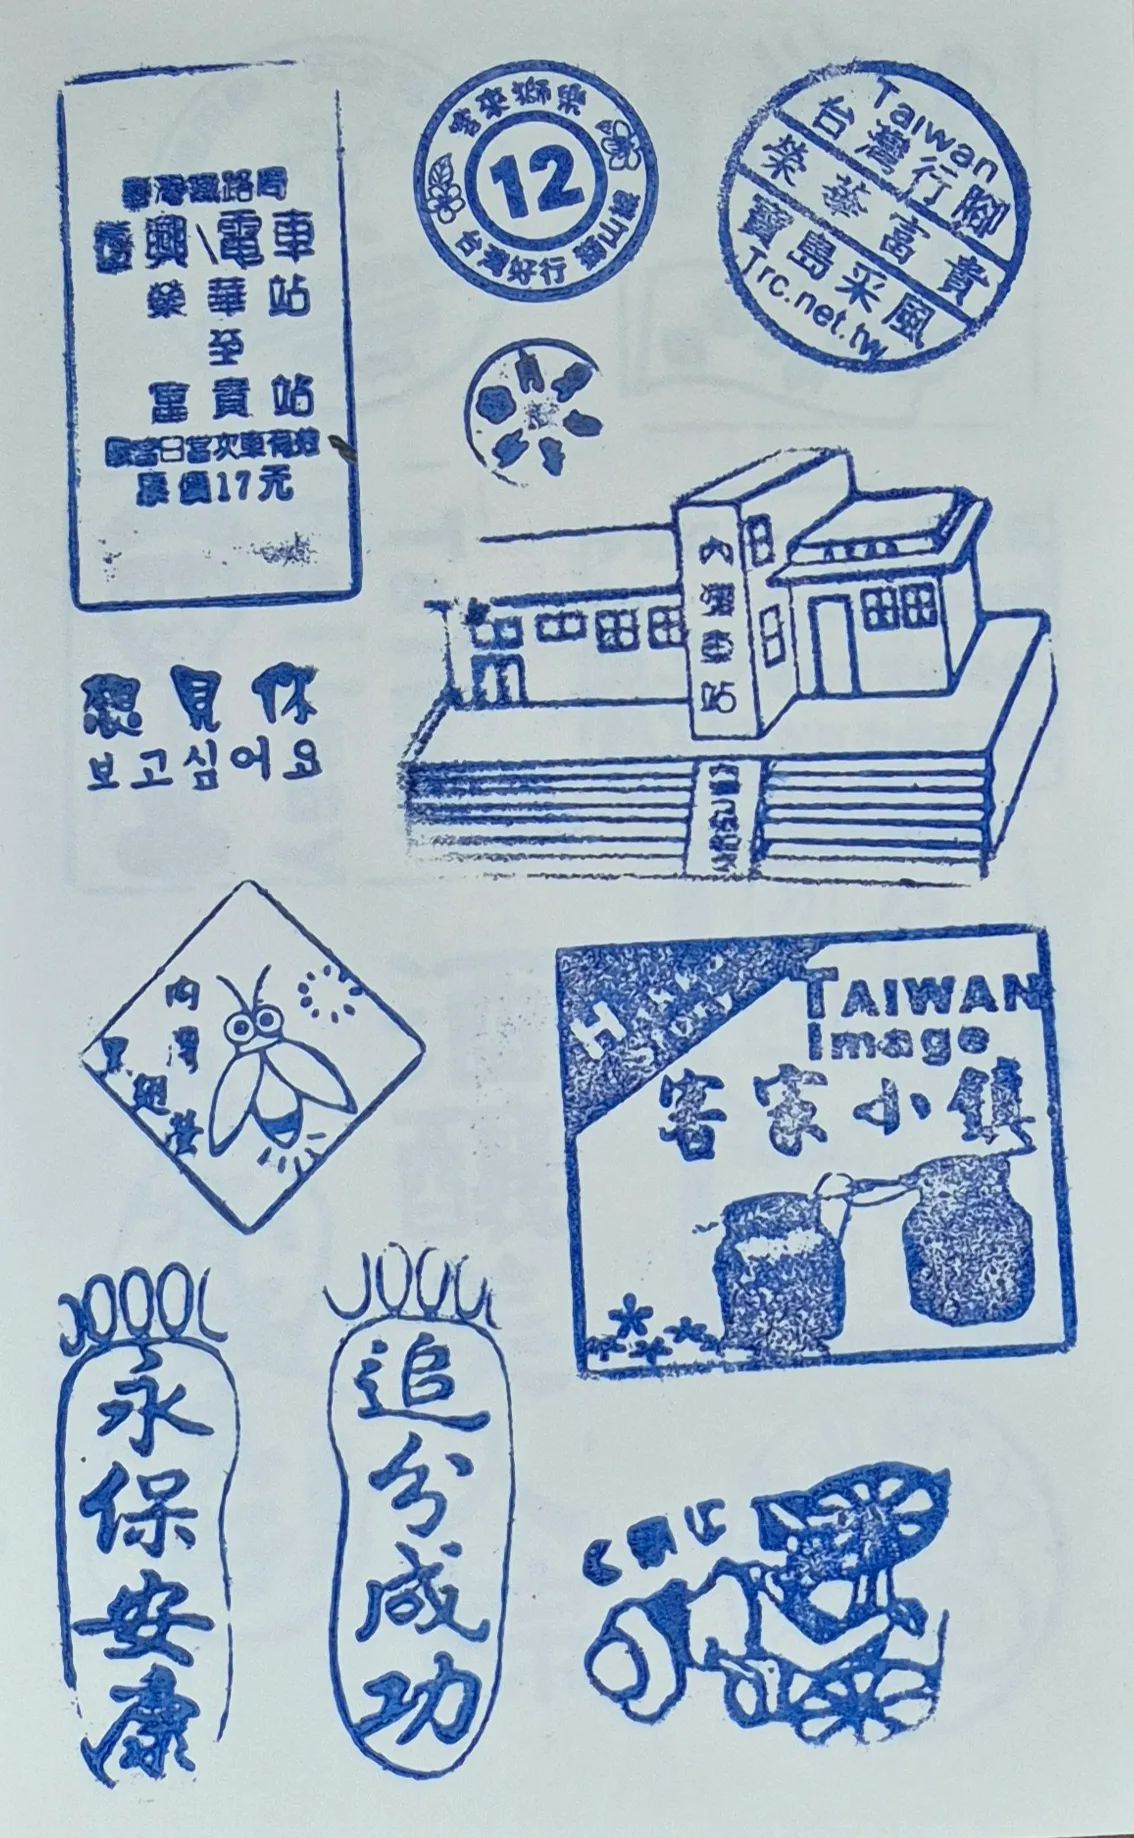 臺灣鐵路局
復興\電車
榮華站
至
富貴站
限當日當次車有效
票價17元
客來獅樂
12
台灣好行 獅山線
Taiwan
台灣行腳
榮華富貴
寶島采風
Trc.net.tw
內灣車站
想見你
보고싶어요
內灣
黑翅螢
TAIWAN
Image
客家小鎮
永保安康
追分成功